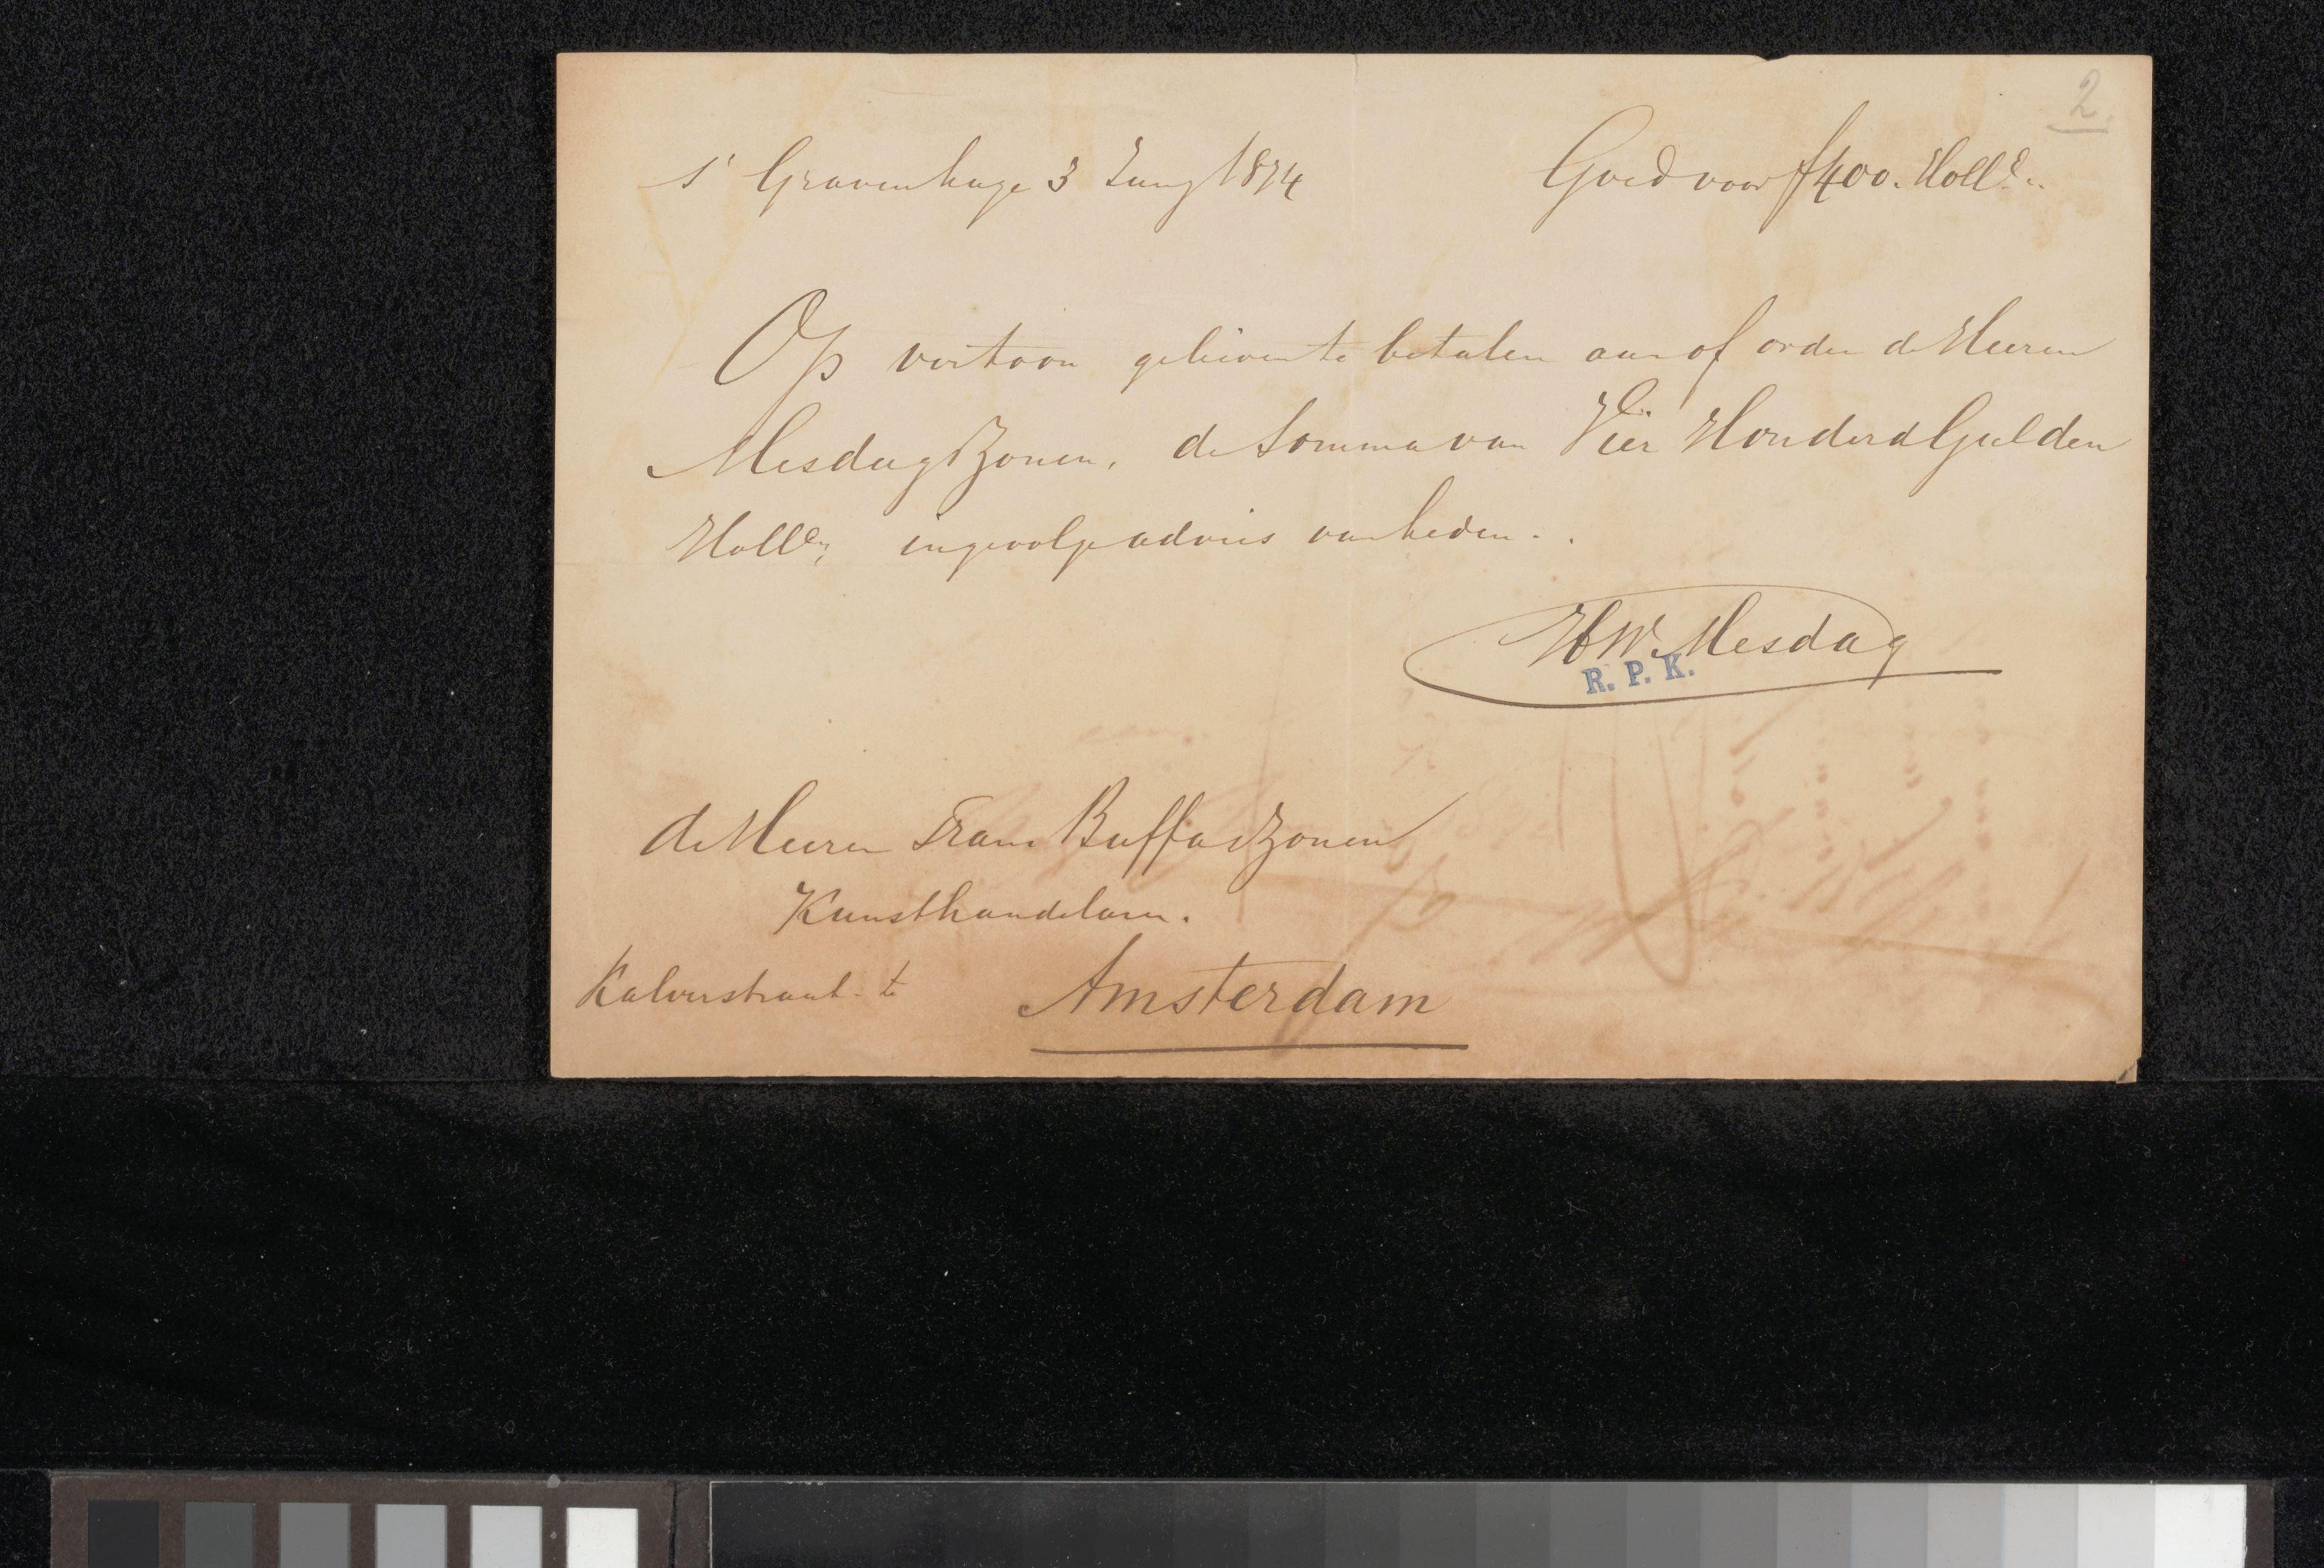 2.
s' Gravenhage 3 Juny 1874
Goed voor f400. Holld.
Op vertoon gelieven te betalen aan of order de Heeren
Mesdag & Zonen, de Somma van Vier Honderd Gulden
Holld, ingevolge advies van heden.
HW Mesdag
R. P. K.
de Heeren Frans Buffa & Zonen
Kunsthandelaren.
Kalverstraat te Amsterdam